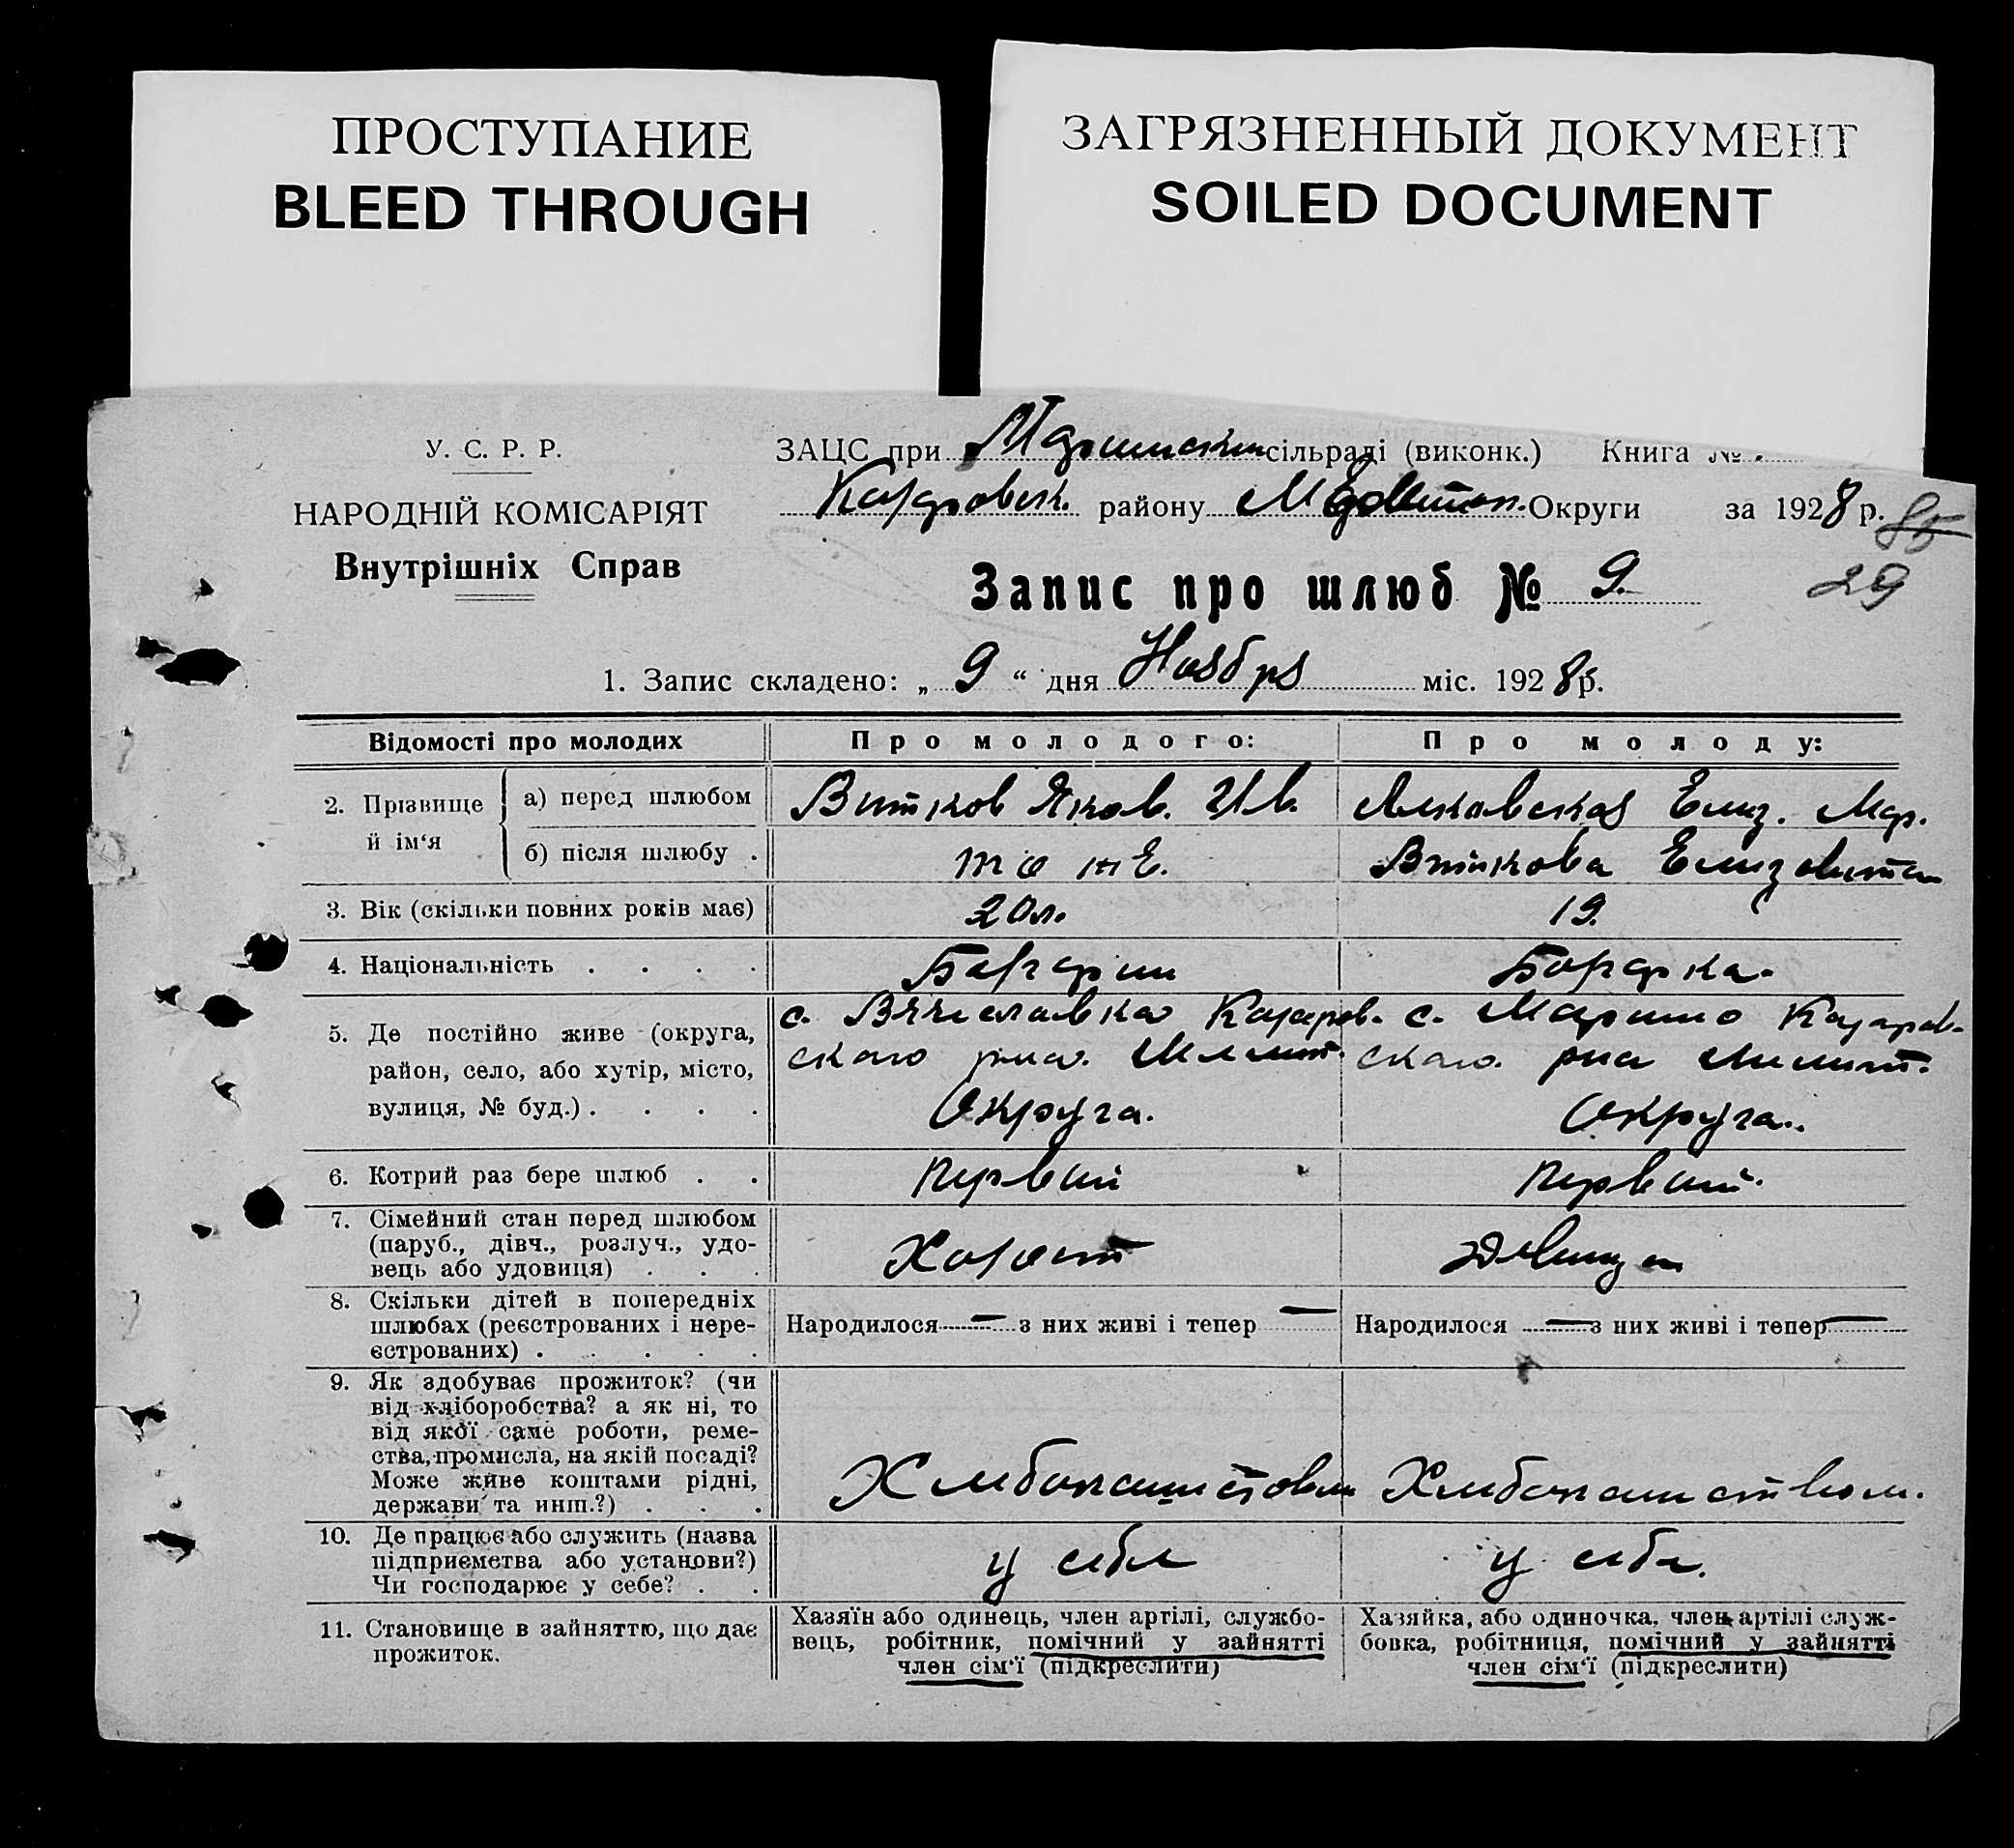 ПРОСТУПАНИЕ
BLEED THROUGH
ЗАГРЯЗНЕННЫЙ ДОКУМЕНТ
SOILED DOCUMENT
У. С. Р. Р.
НАРОДНІЙ КОМІСАРІЯТ
Внутрішніх Справ
ЗАЦС при сільраді (виконк.) Книга №
району Округи за 1928 р. 85
29
Запис про шлюб № 9.
1. Запис складено: „ 9 “ дня Ноября міс. 1928 р.
Відомості про молодих
Про молодого:
Про молоду:
2. Прізвище й ім‘я
а) перед шлюбом
Витков Яков. Ив.
Елиз. Мар.
б) після шлюбу .
то же.
Виткова Елизавета
3. Вік (скільки повних років має)
20 л.
19.
4. Національність . . . .
Болгарин
Болгарка.
5. Де постійно живе (округа,
район, село, або хутір, місто,
вулиця, № буд.) . . . .
с. Вячеславка
ского р-на. Мелит.
Округа.
с. Марино
ского р-на Мелит.
Округа.
6. Котрий раз бере шлюб . .
Первый
Первый.
7. Сімейний стан перед шлюбом
(паруб., дівч., розлуч., удо-
вець або удовиця) . . .
Холост
Девица
8. Скільки дітей в попередніх
шлюбах (реєстрованих і нере-
єстрованих) . . . . .
Народилося — з них живі і тепер —
Народилося — з них живі і тепер —
9. Як здобуває прожиток? (чи
від хліборобства? а як ні, то
від якої саме роботи, реме-
ства, промисла, на якій посаді?
Може живе коштами рідні,
держави та инш.?) . . .
Хлебопашеством
Хлебопашеством.
10. Де працює або служить (назва
підприємства або установи?)
Чи господарює у себе? . .
у себе
у себе.
11. Становище в зайняттю, що дає
прожиток.
Хазяїн або одинець, член артілі, службо-
вець, робітник, помічний у зайнятті
член сім‘ї (підкреслити)
Хазяйка, або одиночка, член артілі служ-
бовка, робітниця, помічний у зайнятті
член сім‘ї (підкреслити)